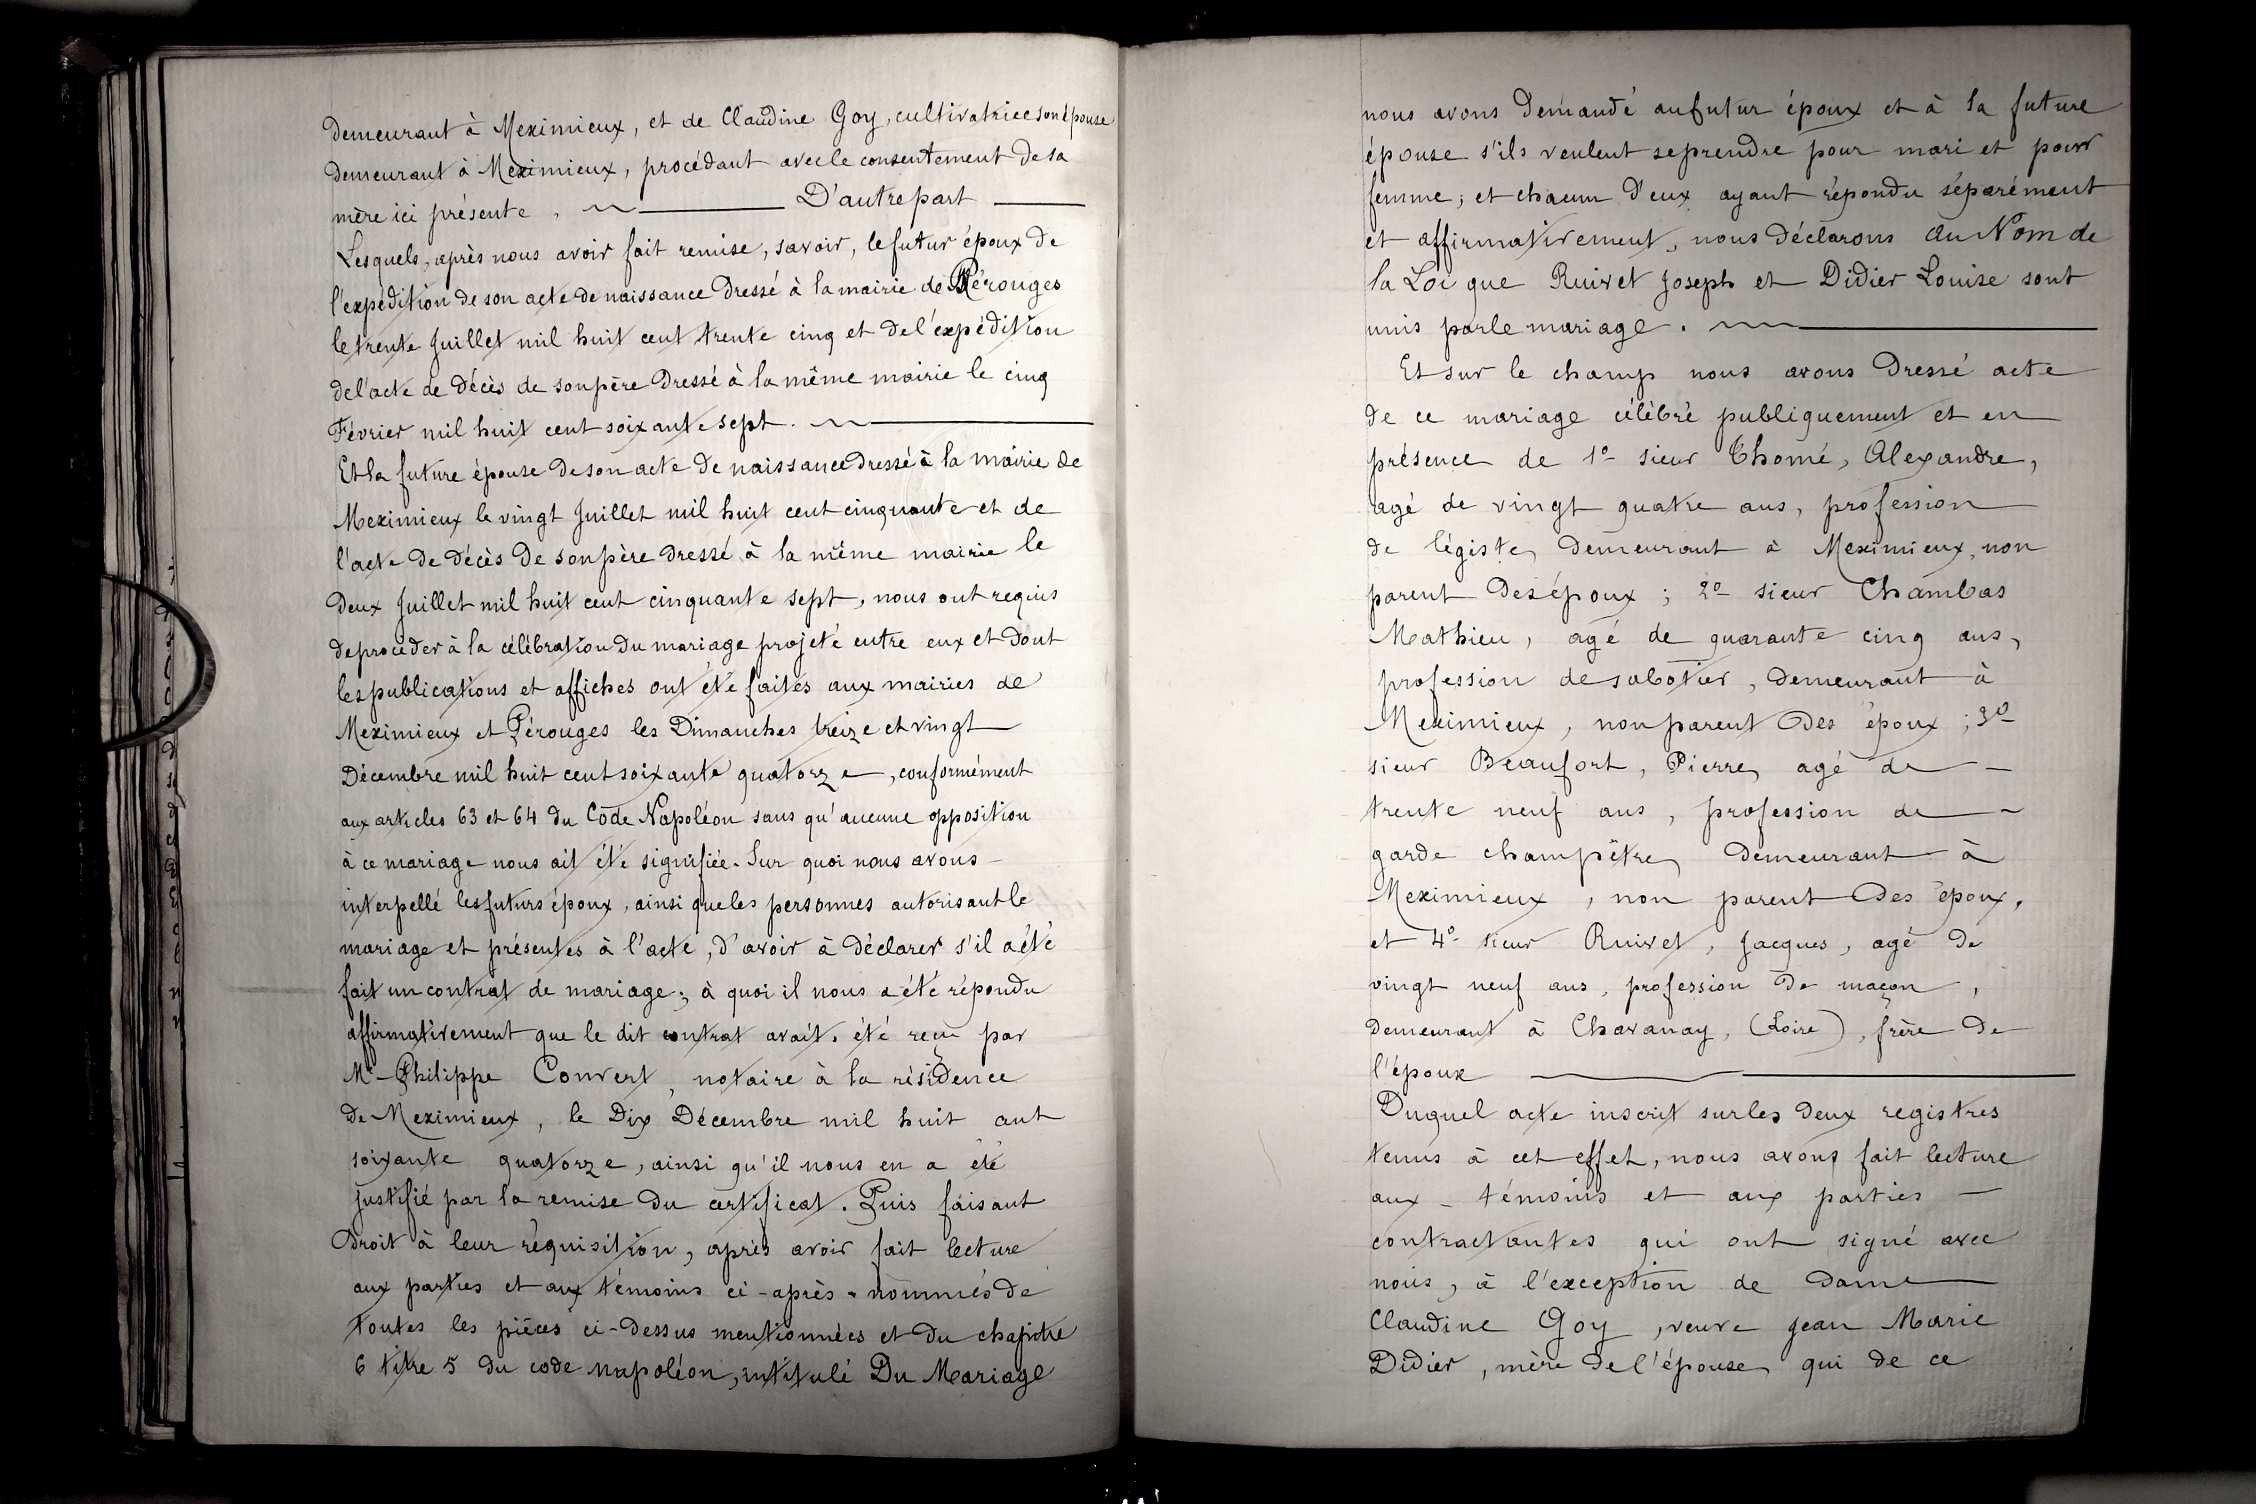 demeurant à Meximieux, et de Claudine Goy, cultivatrice son épouse
demeurant à Meximieux, procédant avec le consentement de sa
mère ici présente, D'autre part
Lesquels, après nous avoir fait remise, savoir, le futur époux de
l'expédition de son acte de naissance dressé à la mairie de Pérouges
le trente Juillet mil huit cent trente cinq et de l'expédition
de l'acte de décès de son père dressé à la même mairie le cinq
Février mil huit cent soixante sept.
Et la future épouse de son acte de naissance dressé à la mairie de
Meximieux le vingt Juillet mil huit cent cinquante et de
l'acte de décès de son père dressé à la même mairie le
deux Juillet mil huit cent cinquante sept, nous ont requis
de procéder à la célébration du mariage projeté entre eux et dont
les publications et affiches ont été faites aux mairies de
Meximieux et Pérouges les Dimanches treize et vingt
Décembre mil huit cent soixante quatorze, conformément
aux articles 63 et 64 du Code Napoléon sans qu'aucune opposition
à ce mariage nous ait été signifiée. Sur quoi nous avons
interpellé les futurs époux, ainsi que les personnes autorisant le
mariage et présentes à l'acte, d'avoir à déclarer s'il a été
fait un contrat de mariage; à quoi il nous a été répondu
affirmativement que le dit contrat avait été reçu par
Me Philippe Convert, notaire à la résidence
de Meximieux, le Dix Décembre mil huit cent
soixante quatorze, ainsi qu'il nous en a été
justifié par la remise du certificat. Puis faisant
droit à leur réquisition, après avoir fait lecture
aux parties et aux témoins ci-après-nommés de
toutes les pièces ci-dessus mentionnées et du chapitre
6 titre 5 du code napoléon, intitulé Du Mariage
nous avons demandé au futur époux et à la future
épouse s'ils veulent se prendre pour mari et pour
femme; et chacun d'eux ayant répondu séparément
et affirmativement, nous déclarons Au Nom de
la Loi que Ruivet Joseph et Didier Louise sont
unis par le mariage.
Et sur le champ nous avons dressé acte
de ce mariage célébré publiquement et en
présence de 1o sieur Thomé, Alexandre,
agé de vingt quatre ans, profession
de légiste, demeurant à Meximieux, non
parent des époux; 2o sieur Chambas
Mathieu, agé de quarante cinq ans,
profession de sabotier, demeurant à
Meximieux, non parent des époux; 3o
sieur Beaufort, Pierre, agé de
trente neuf ans, profession de
garde champêtre, demeurant à
Meximieux, non parent des époux,
et 4o sieur Ruivet, Jacques, agé de
vingt neuf ans, profession de maçon,
demeurant à Chavanay, (Loire), frère de
l'époux
Duquel acte inscrit sur les deux registres
tenus à cet effet, nous avons fait lecture
aux témoins et aux parties
contractantes qui ont signé avec
nous, à l'exception de dame
Claudine Goy, veuve Jean Marie
Didier, mère de l'épouse, qui de ce